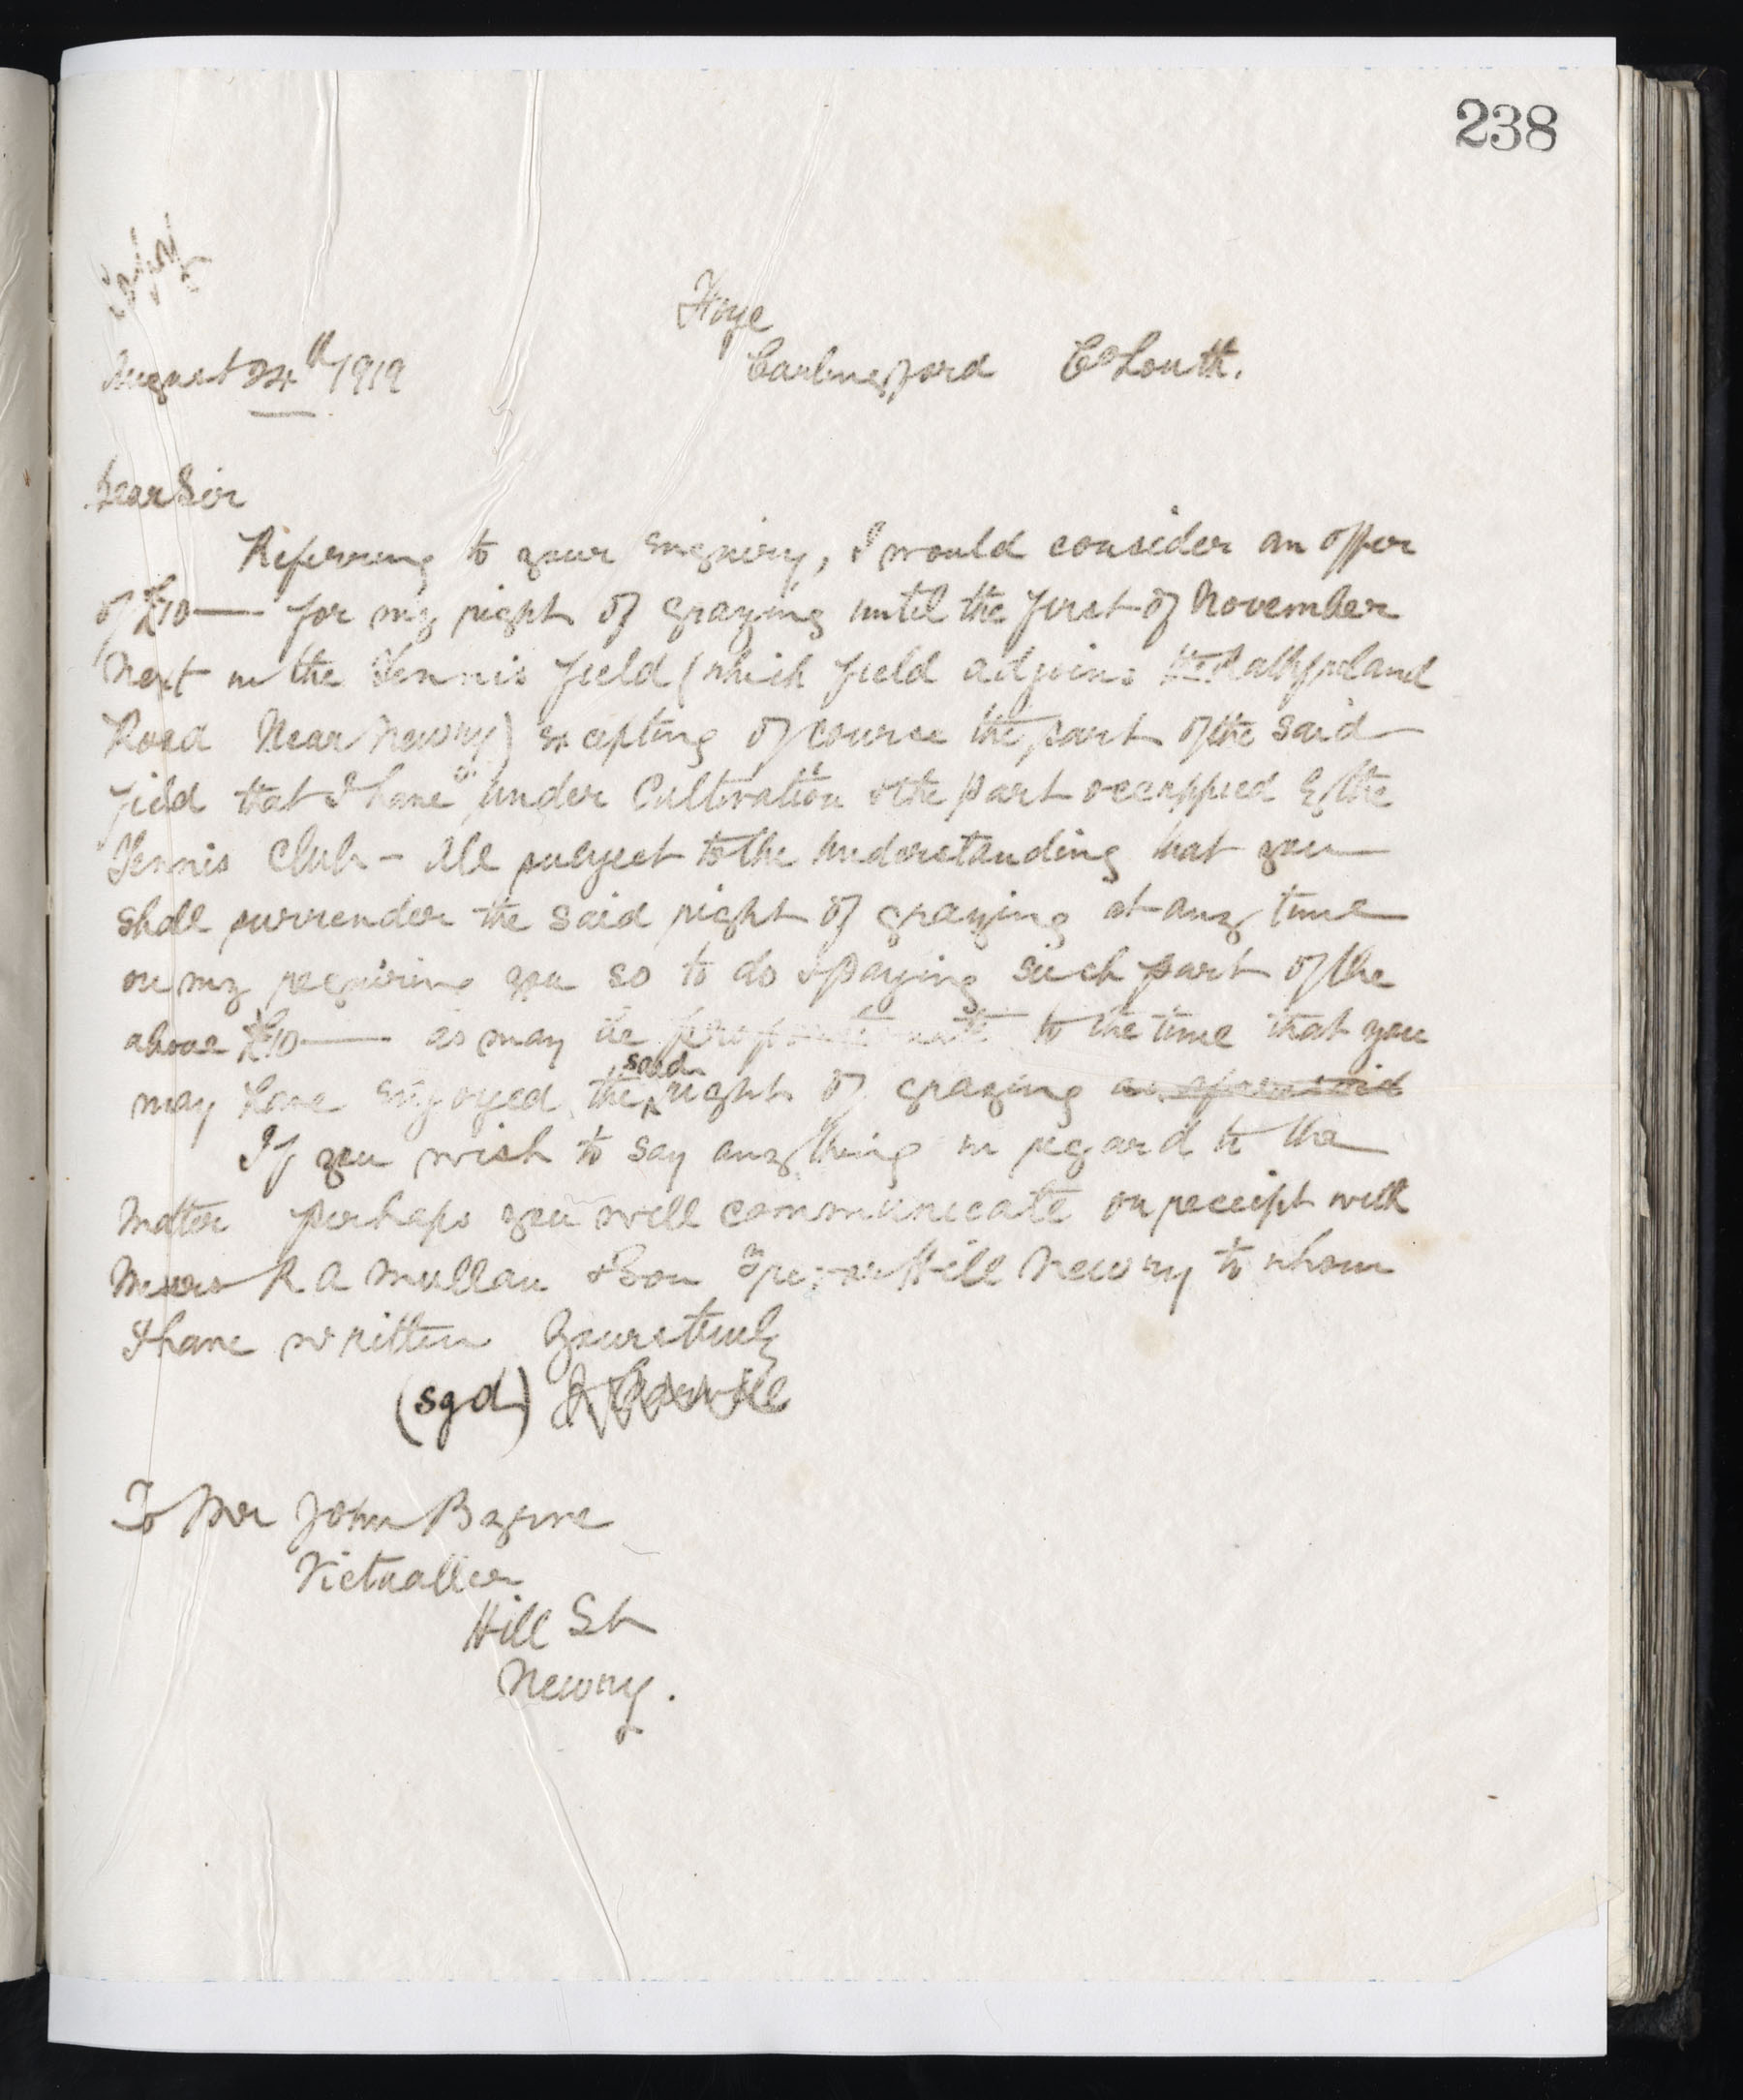 238
Copy
August 24th 1919
Carlingford Co Louth.
Dear Sir
Referring to your enquiry, I would consider an offer
of £10— for my right of grazing until the first of November
Next in the Tennis field (which field adjoins the Rathfriland
Road Near Newry) excepting of course the part of the said
field that I have under Cultivation & the part occuppied by the
Tennis Club - All subject to the understanding that you
shall surrender the said right of grazing at any time
on my requiring you so to do & paying such part of the
above £10— as may be proportionate to the time that you
may have enjoyed the said right of grazing as aforesaid
If you wish to say anything in regard to the
Matter perhaps you will communicate on receipt with
Messrs R A Mullan & Son Trevor Hill Newry to whom
I have written Yours truly
(sgd)
To Mr John Byrne
Victualler
Hill St
Newry.